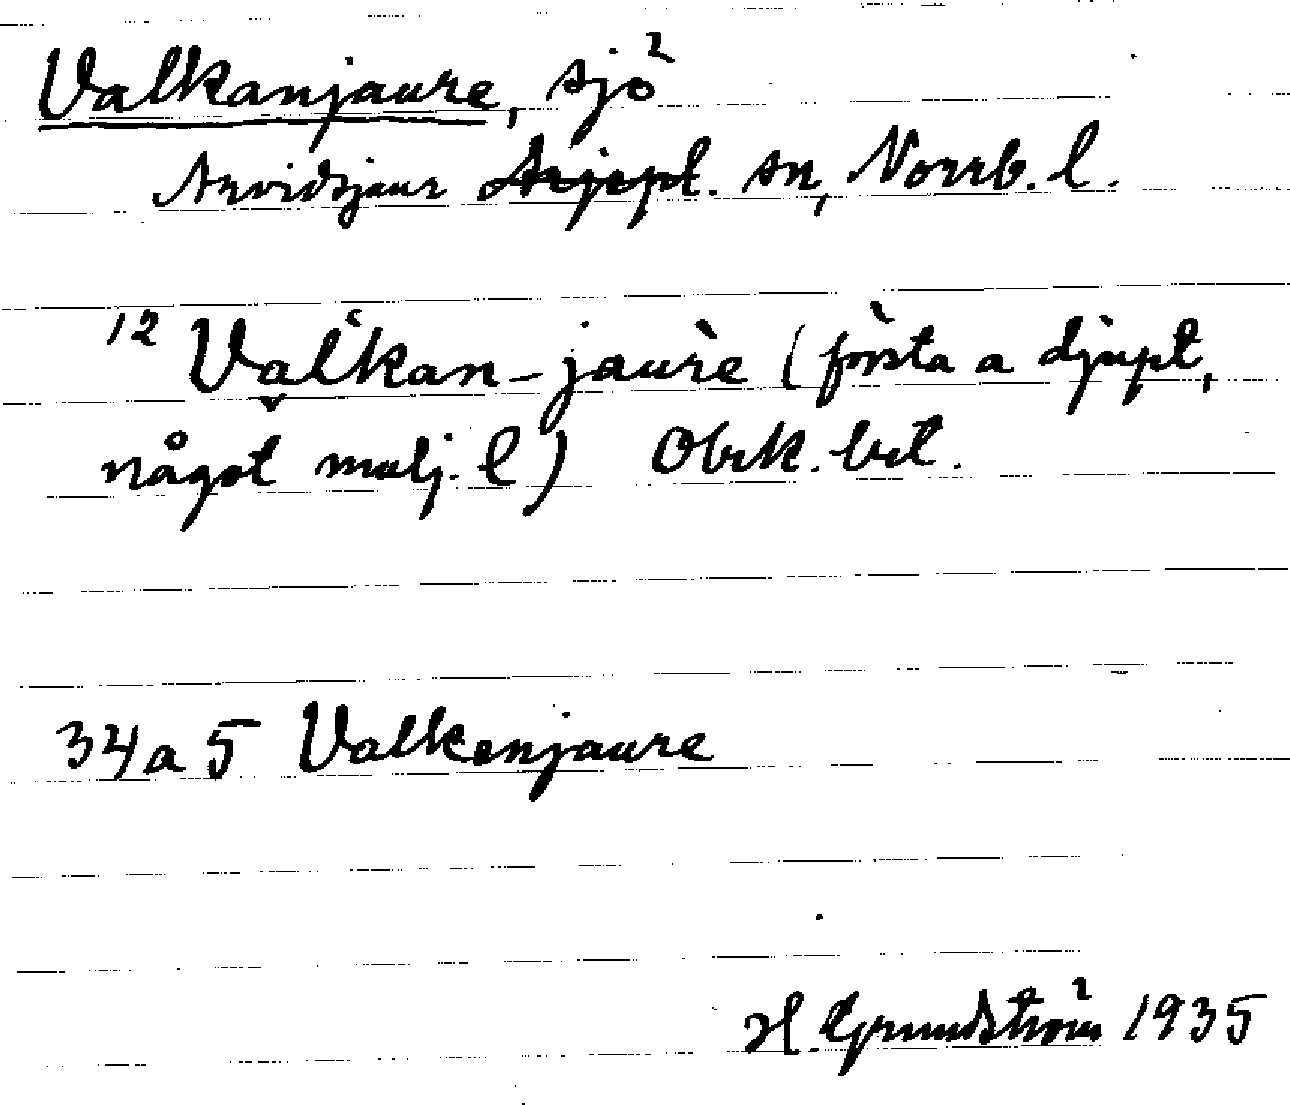 Valkanjaure, sjö
Arvidsjaur Arjepl. sn, Norrb. l.
12 Val̀kan-jaurè (första a djupt,
något mulj. l) Obrk. brt.
34a5 Valkenjaure
H. Grundström 1935